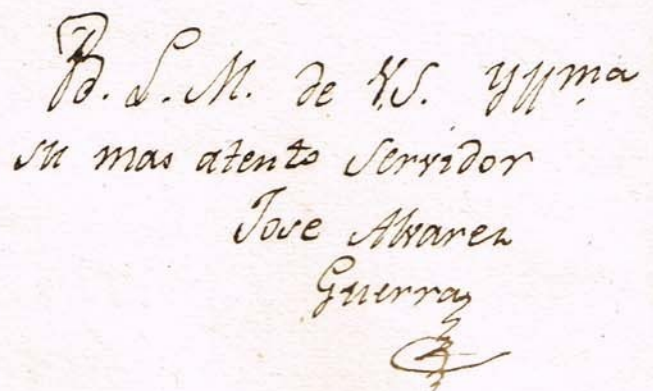 B. L. M. de V.S. Yllma
su mas atento servidor
Jose Alvarez
Guerra